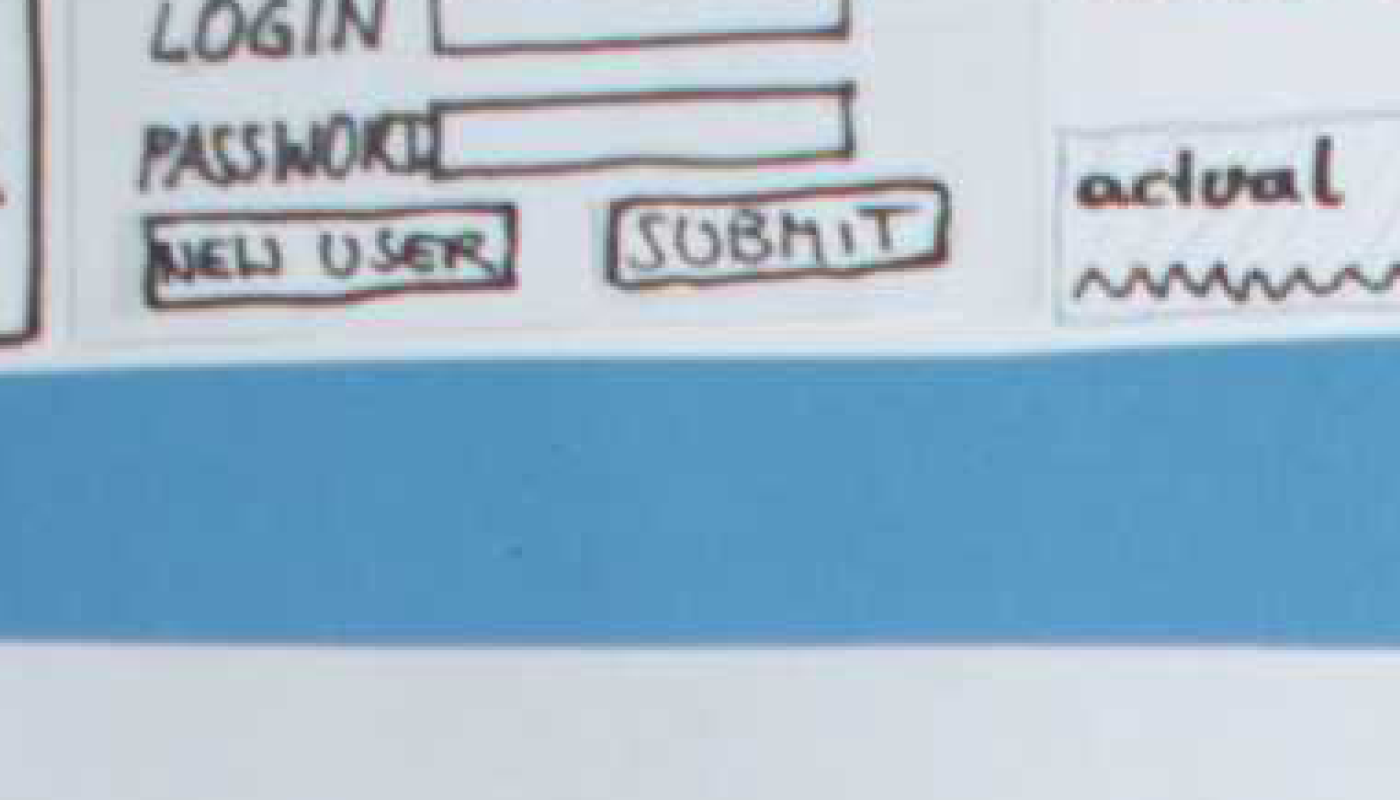 LOGIN
PASSWORD
NEW USER
SUBMIT
actual